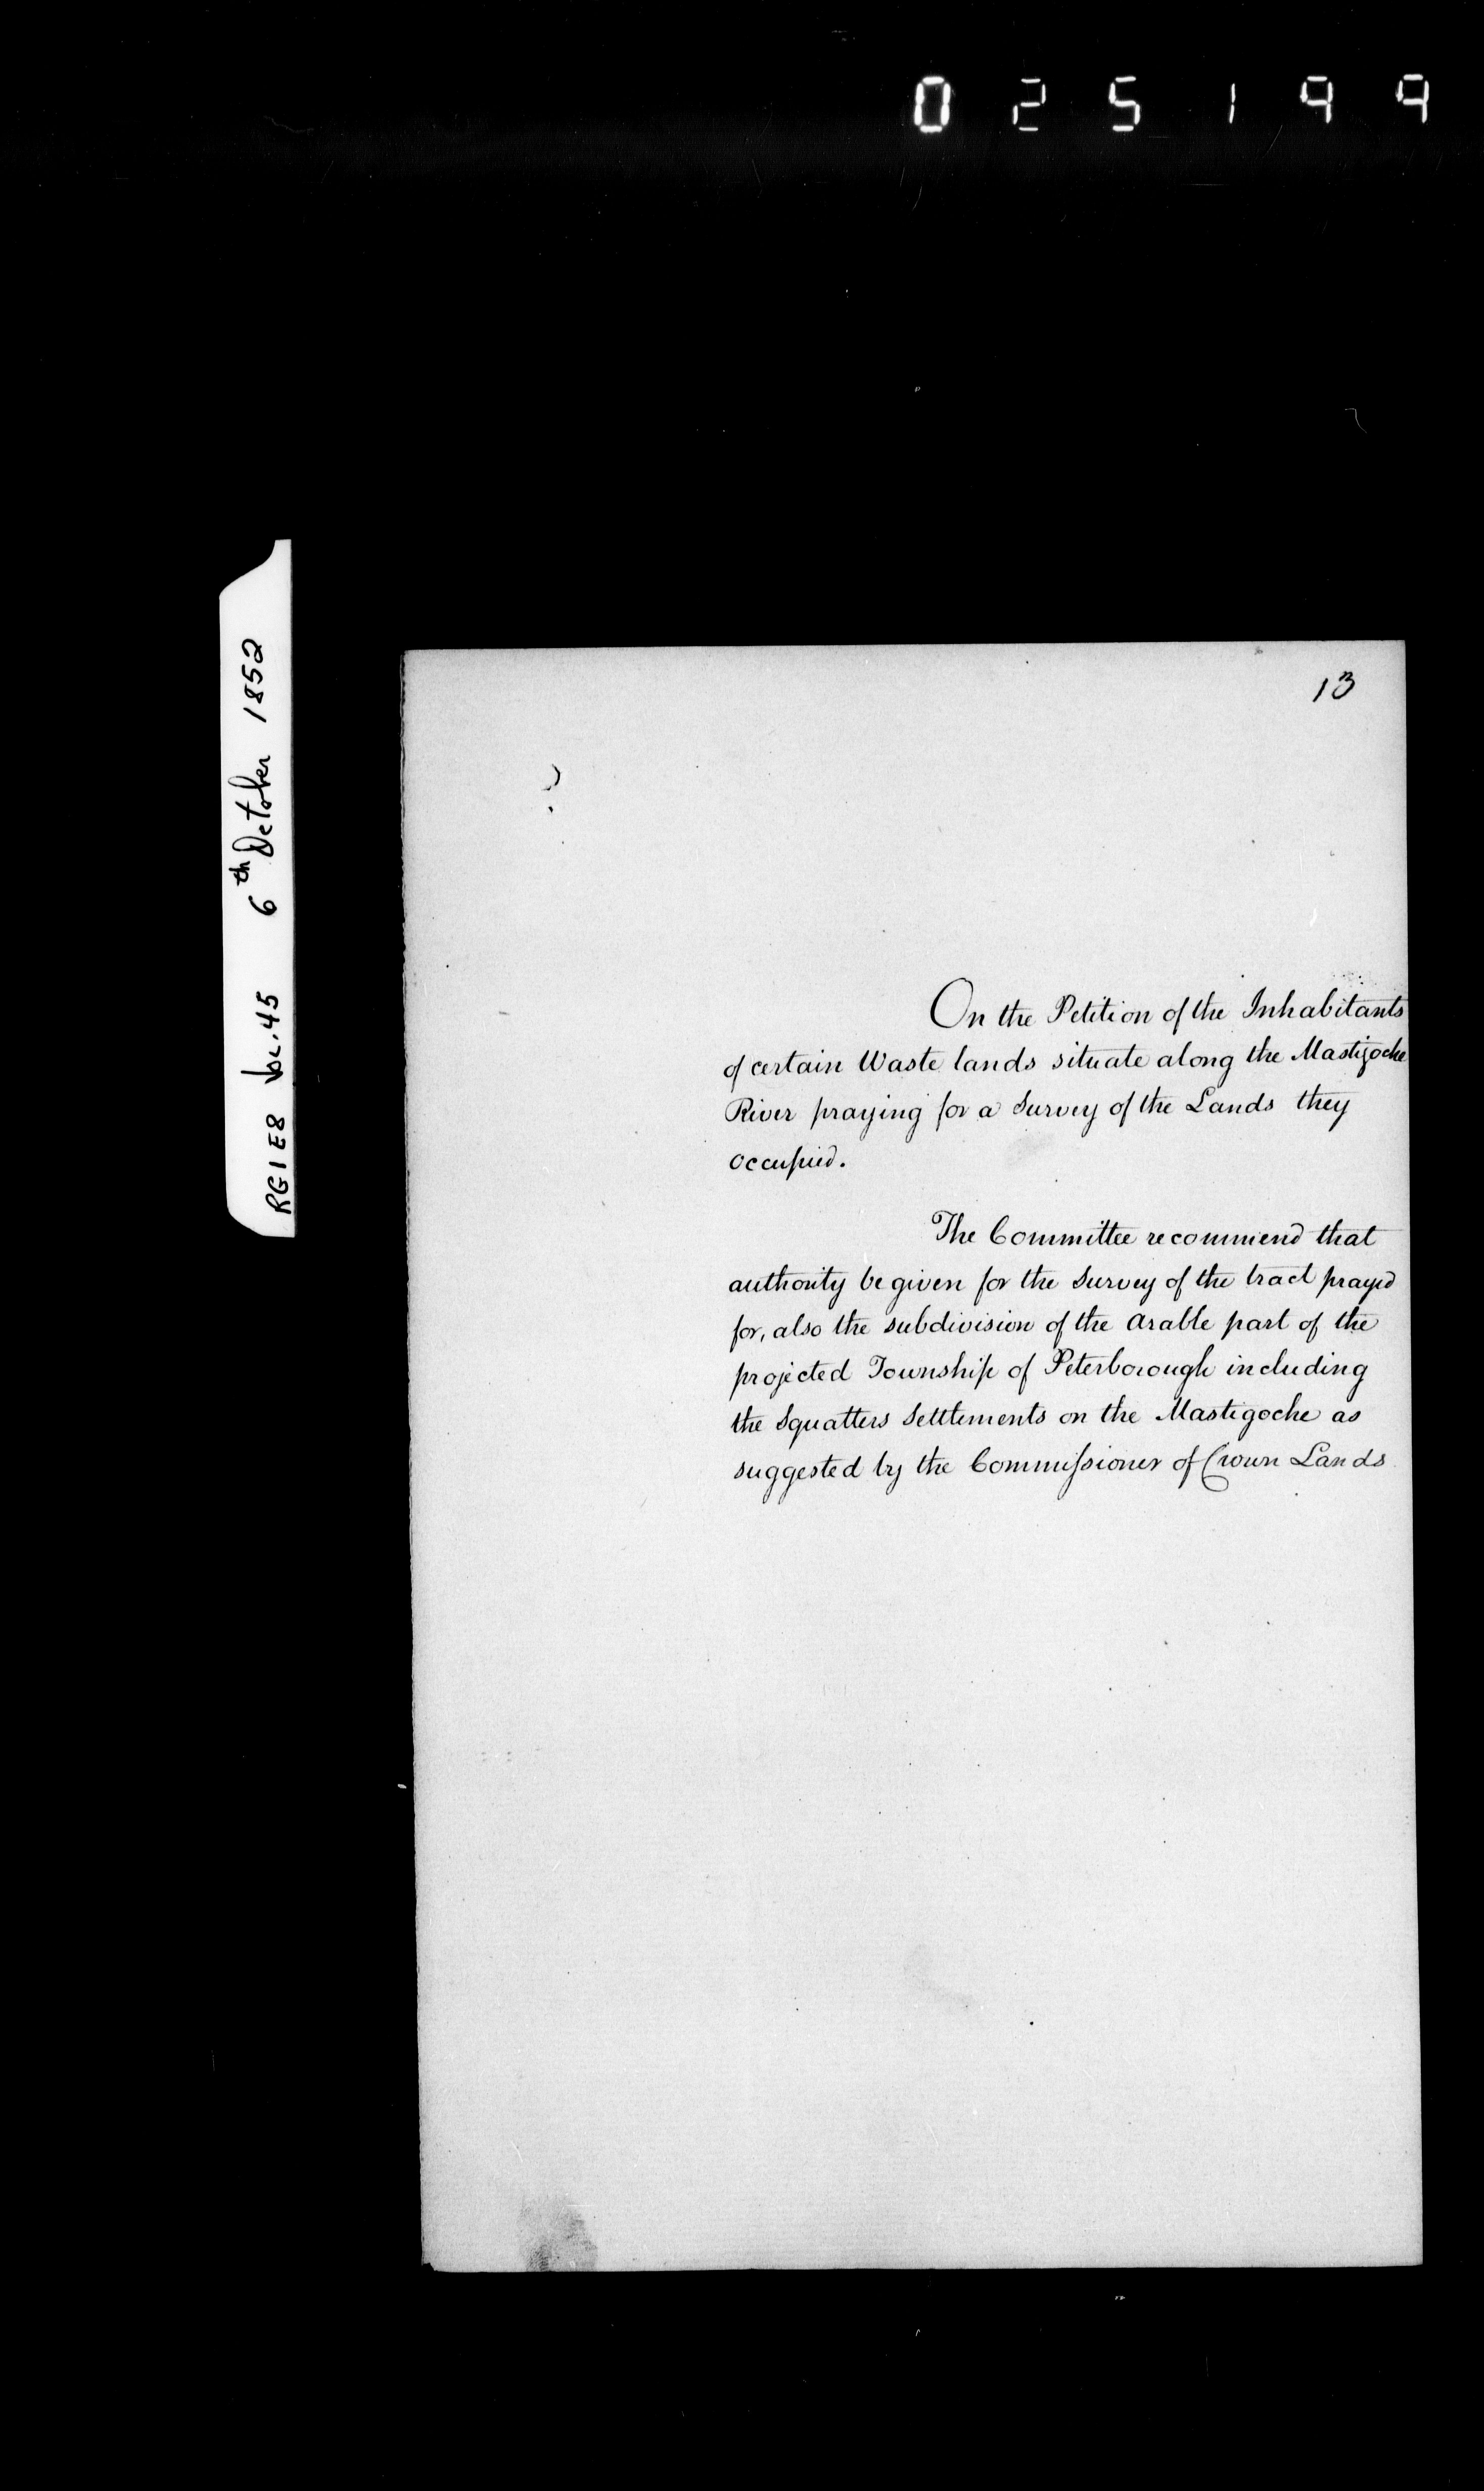 025199
RG1E8 Vol.45 6th October 1852
13
On the Petition of the Inhabitants
of certain Waste lands situate along the Mastigoche
River praying for a Survey of the Lands they
occupied.
The Committee recommend that
authority be given for the Survey of the tract prayed
for, also the subdivision of the arable part of the
projected Township of Peterborough including
the Squatters Settlements on the Mastigoche as
suggested by the Commissioner of Crown Lands